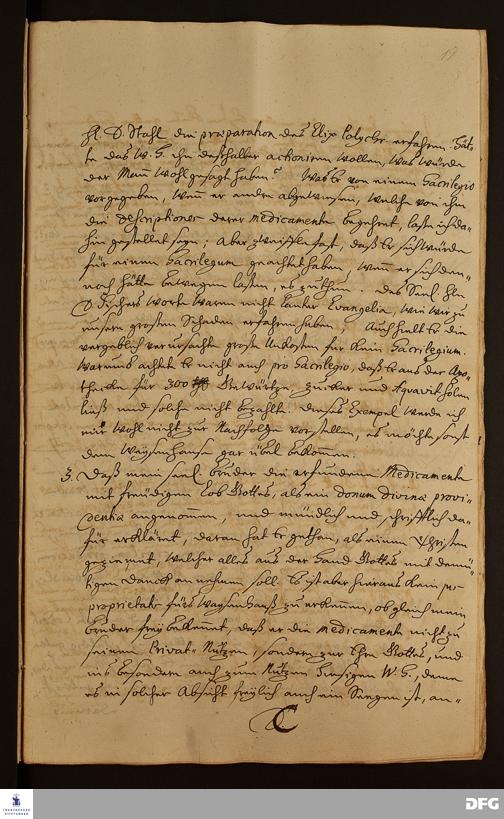 17
H. D. Stahl die præparation des Elix. Polychr. erfahren. Hät-
te das W. H. ihn deßhalber actioniren wollen, was würde
der Mann wohl gesagt haben? Was Er von einem Sacrilegio
vorgegeben, wenn er andre abgewiesen, welche von ihm
die descriptiones derer Medicamente begehret, laße ich da-
hin gestellet seyn; aber zweiffle fast, daß Er sich würde
für einen Sacrilegum geachtet haben, wenn er sich den-
noch hätte bewegen laßen, es zu thun. Des Seel. Hln
D. Fischers Worte waren nicht lauter Evangelia, wie wir zu
unserm großen Schaden erfahren haben; Auch hielt Er die
vergeblich verursachte große Unkosten für kein Sacrilegium.
Warum achtete Er nicht auch pro Sacrilegio, daß Er aus der Apo-
thecke für 300 Gewürtze, zucker und Aquavit holen
ließ und solche nicht bezahlte. Dieses Exempel werde ich
mir wohl nicht zur Nachfolge vorstellen, es möchte sonst
dem Waysenhause gar übel bekommen.
3. Daß mein seel. Bruder die erfundene Medicamente
mit freudigem Lob Gottes, als ein donum divinæ provi-
dentiæ angenommen, und mündlich und schrifftlich da-
für erklärt, daran hat Er gethan, als einem Christen
geziemet, welcher alles aus der Hand Gottes mit demü-
tigen Danck annehmen soll. Es ist aber hieraus kein
proprietät fürs Waysenhauß zu erkennen, ob gleich mein
Bruder frey bekennet, daß er die Medicamente nicht zu
seinem Privat-Nutzen, sondern zur Ehre Gottes, und
ins besondere auch zum Nutzen hiesigen W. H., denn
es in solcher Absicht freylich auch ein Seegen ist, an-
C
FRANCKESCHE STIFTUNGEN
DFG